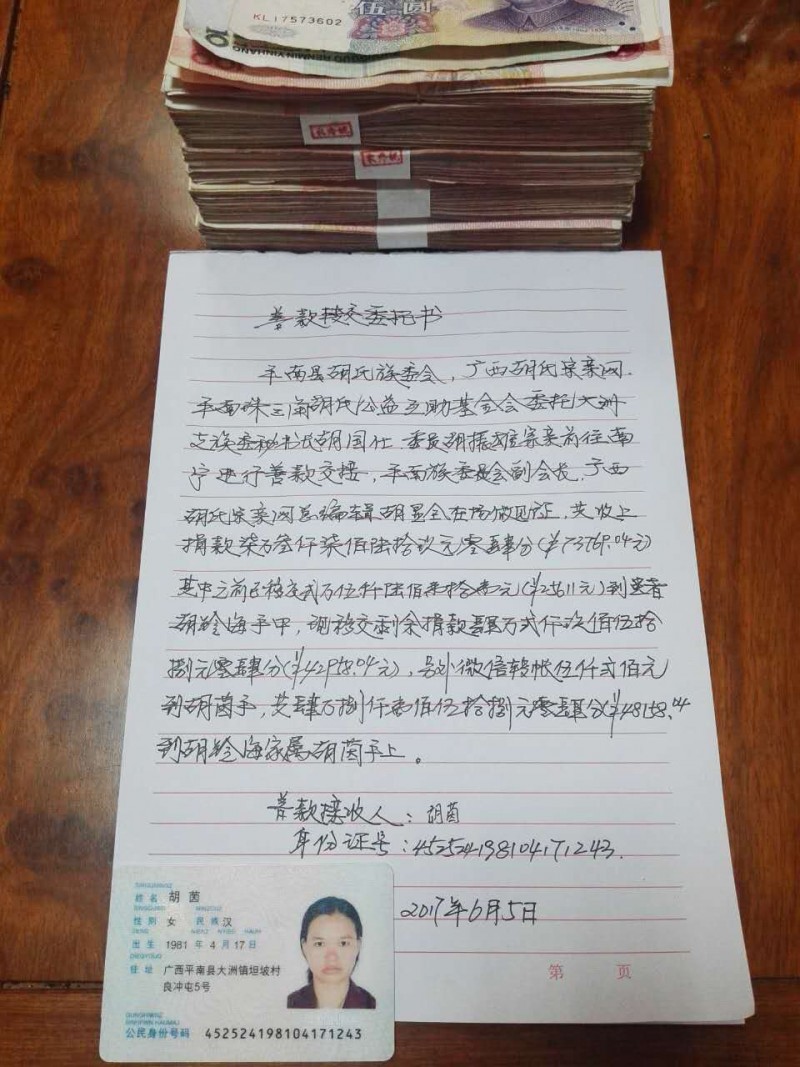 KL17573602
伍圆
善款接交委托书
平南县胡氏族委会，广西胡氏宗亲网.
平南珠三角胡氏公益互助基金会委托大洲
支族委秘书长胡国仕.委员胡振雄宗亲前往南
宁进行善款交接，平南族委员会副会长.广西
胡氏宗亲网总编辑胡显全在场做见证，共收上
捐款柒万叁仟柒佰陆拾玖元零肆分(¥73769.04元)
其中之前已移交贰万伍仟陆佰壹拾壹元(¥25611元)到患者
胡 海手中，现移交剩余捐款肆万贰仟玖佰伍拾
捌元零肆分(¥42958.04元)，另外微信转帐伍仟贰佰元
到胡茵手，共肆万捌仟壹佰伍拾捌元零肆分(¥48158.04
到胡 海家属胡茵手上。
善款接收人：胡茵
身份证号：452524198104171243.
2017年6月5日
第 页
姓名 胡茵
性别 女 民族 汉
出生 1981 年 4 月 17 日
住址 广西平南县大洲镇坦坡村
良冲屯5号
公民身份号码 452524198104171243